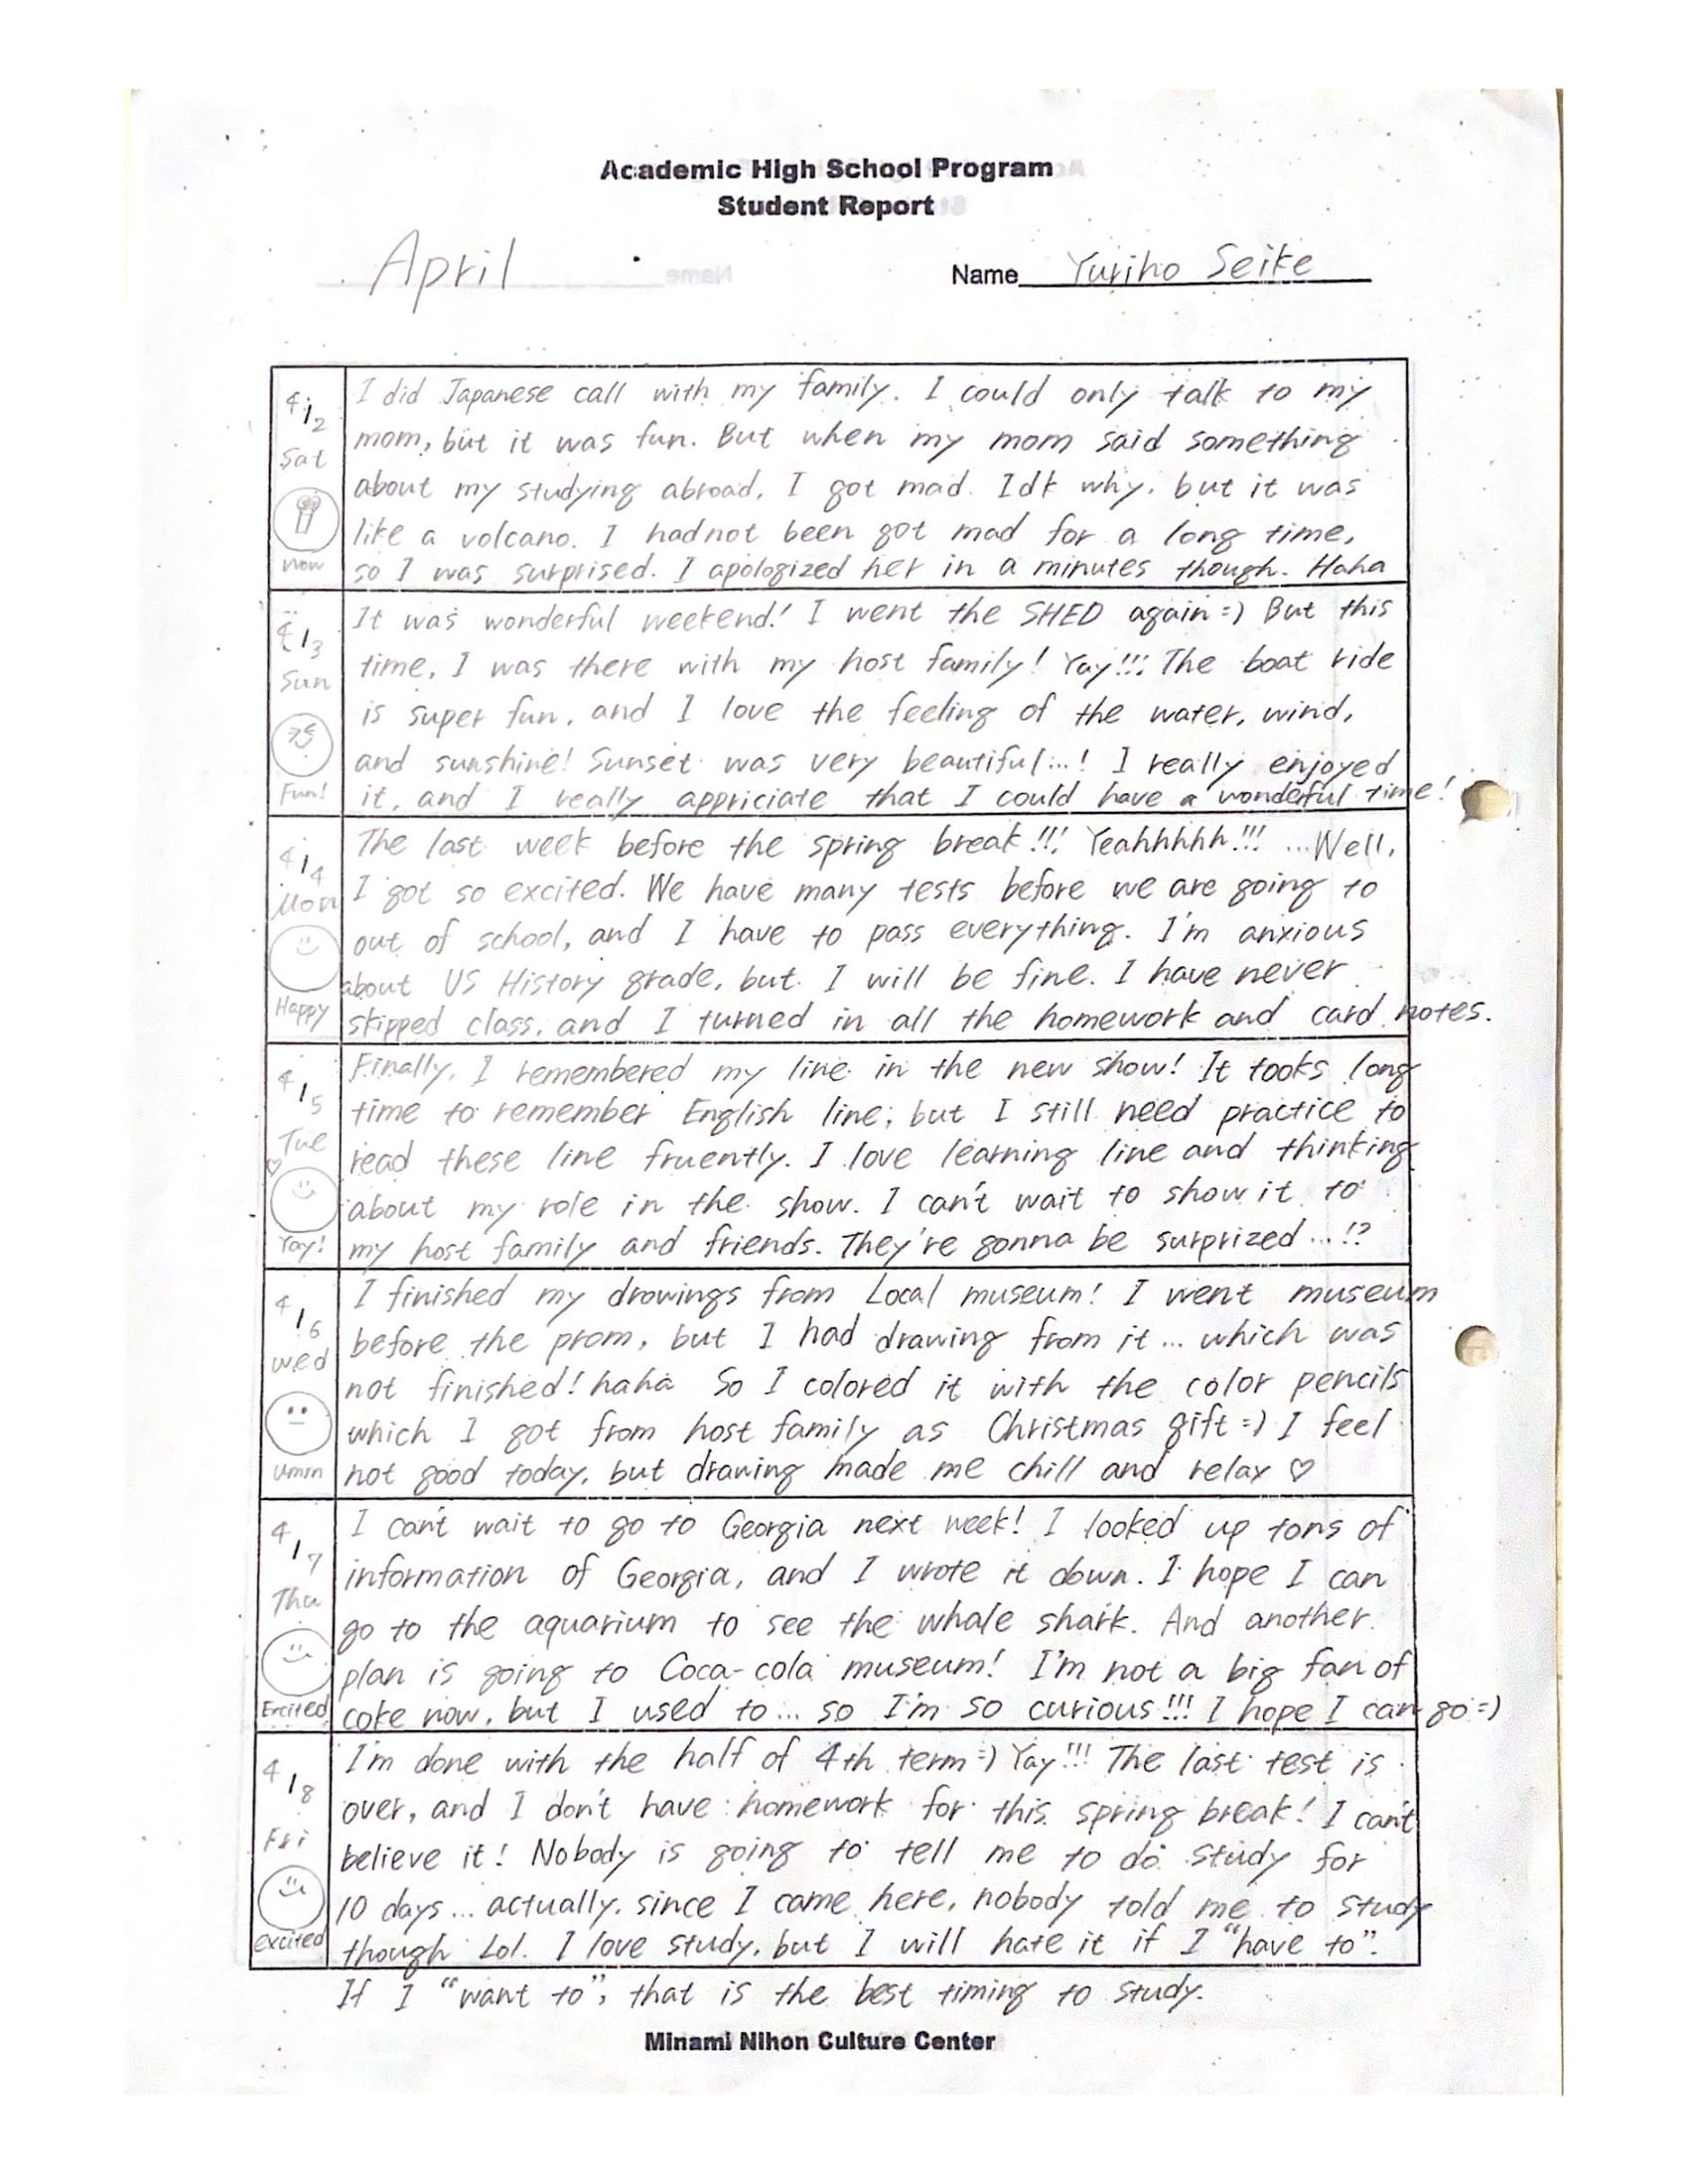 Academic High School Program
Student Report
April
Name Yuriho Seike
4/12
Sat
wow
I did Japanese call with my family. I could only talk to my
mom, but it was fun. But when my mom said something
about my studying abroad, I got mad. Idk why, but it was
like a volcano. I had not been got mad for a long time,
so I was surprised. I apologized her in a minutes though. Haha
4/13
Sun
Fun!
It was wonderful weekend! I went the SHED again=) But this
time, I was there with my host family! Yay!!! The boat ride
is super fun, and I love the feeling of the water, wind,
and sunshine! Sunset was very beautiful...! I really enjoyed
it, and I really appriciate that I could have a wonderful time!
4/14
Mon
Happy
The last week before the spring break!!! Yeahhhhh!!! ...Well,
I got so excited. We have many tests before we are going to
out of school, and I have to pass everything. I'm anxious
about US History grade, but I will be fine. I have never
skipped class, and I turned in all the homework and card notes.
4/15
Tue
♡
Yay!
Finally, I remembered my line in the new show! It tooks long
time to remember English line, but I still need practice to
read these line fruently. I love learning line and thinking
about my role in the show. I can't wait to show it to
my host family and friends. They're gonna be surprized...!?
4/16
Wed
Umm
I finished my drawings from Local museum! I went museum
before the prom, but I had drawing from it... which was
not finished! haha So I colored it with the color pencils
which I got from host family as Christmas gift=) I feel
not good today, but drawing made me chill and relax ♡
4/17
Thu
Excited
I can't wait to go to Georgia next week! I looked up tons of
information of Georgia, and I wrote it down. I hope I can
go to the aquarium to see the whale shark. And another
plan is going to Coca-cola museum! I'm not a big fan of
coke now, but I used to... so I'm so curious!!! I hope I can go=)
4/18
Fri
excited
I'm done with the half of 4th term=) Yay!!! The last test is
over, and I don't have homework for this spring break! I can't
believe it! Nobody is going to tell me to do study for
10 days... actually, since I came here, nobody told me to study
though Lol. I love study, but I will hate it if I "have to".
If I "want to", that is the best timing to study.
Minami Nihon Culture Center